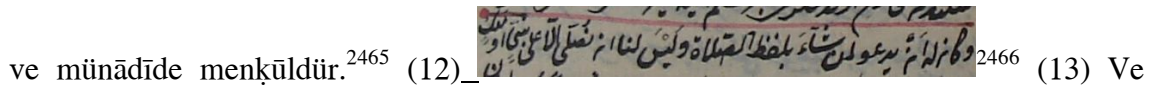 ve münādīde menḳūldür.2465 (12)_ وكان له ان يدعو لمن شآء بلفظ الصلاة وليس لنا ان نصلى الا على نبى او ملك 2466 (13) Ve